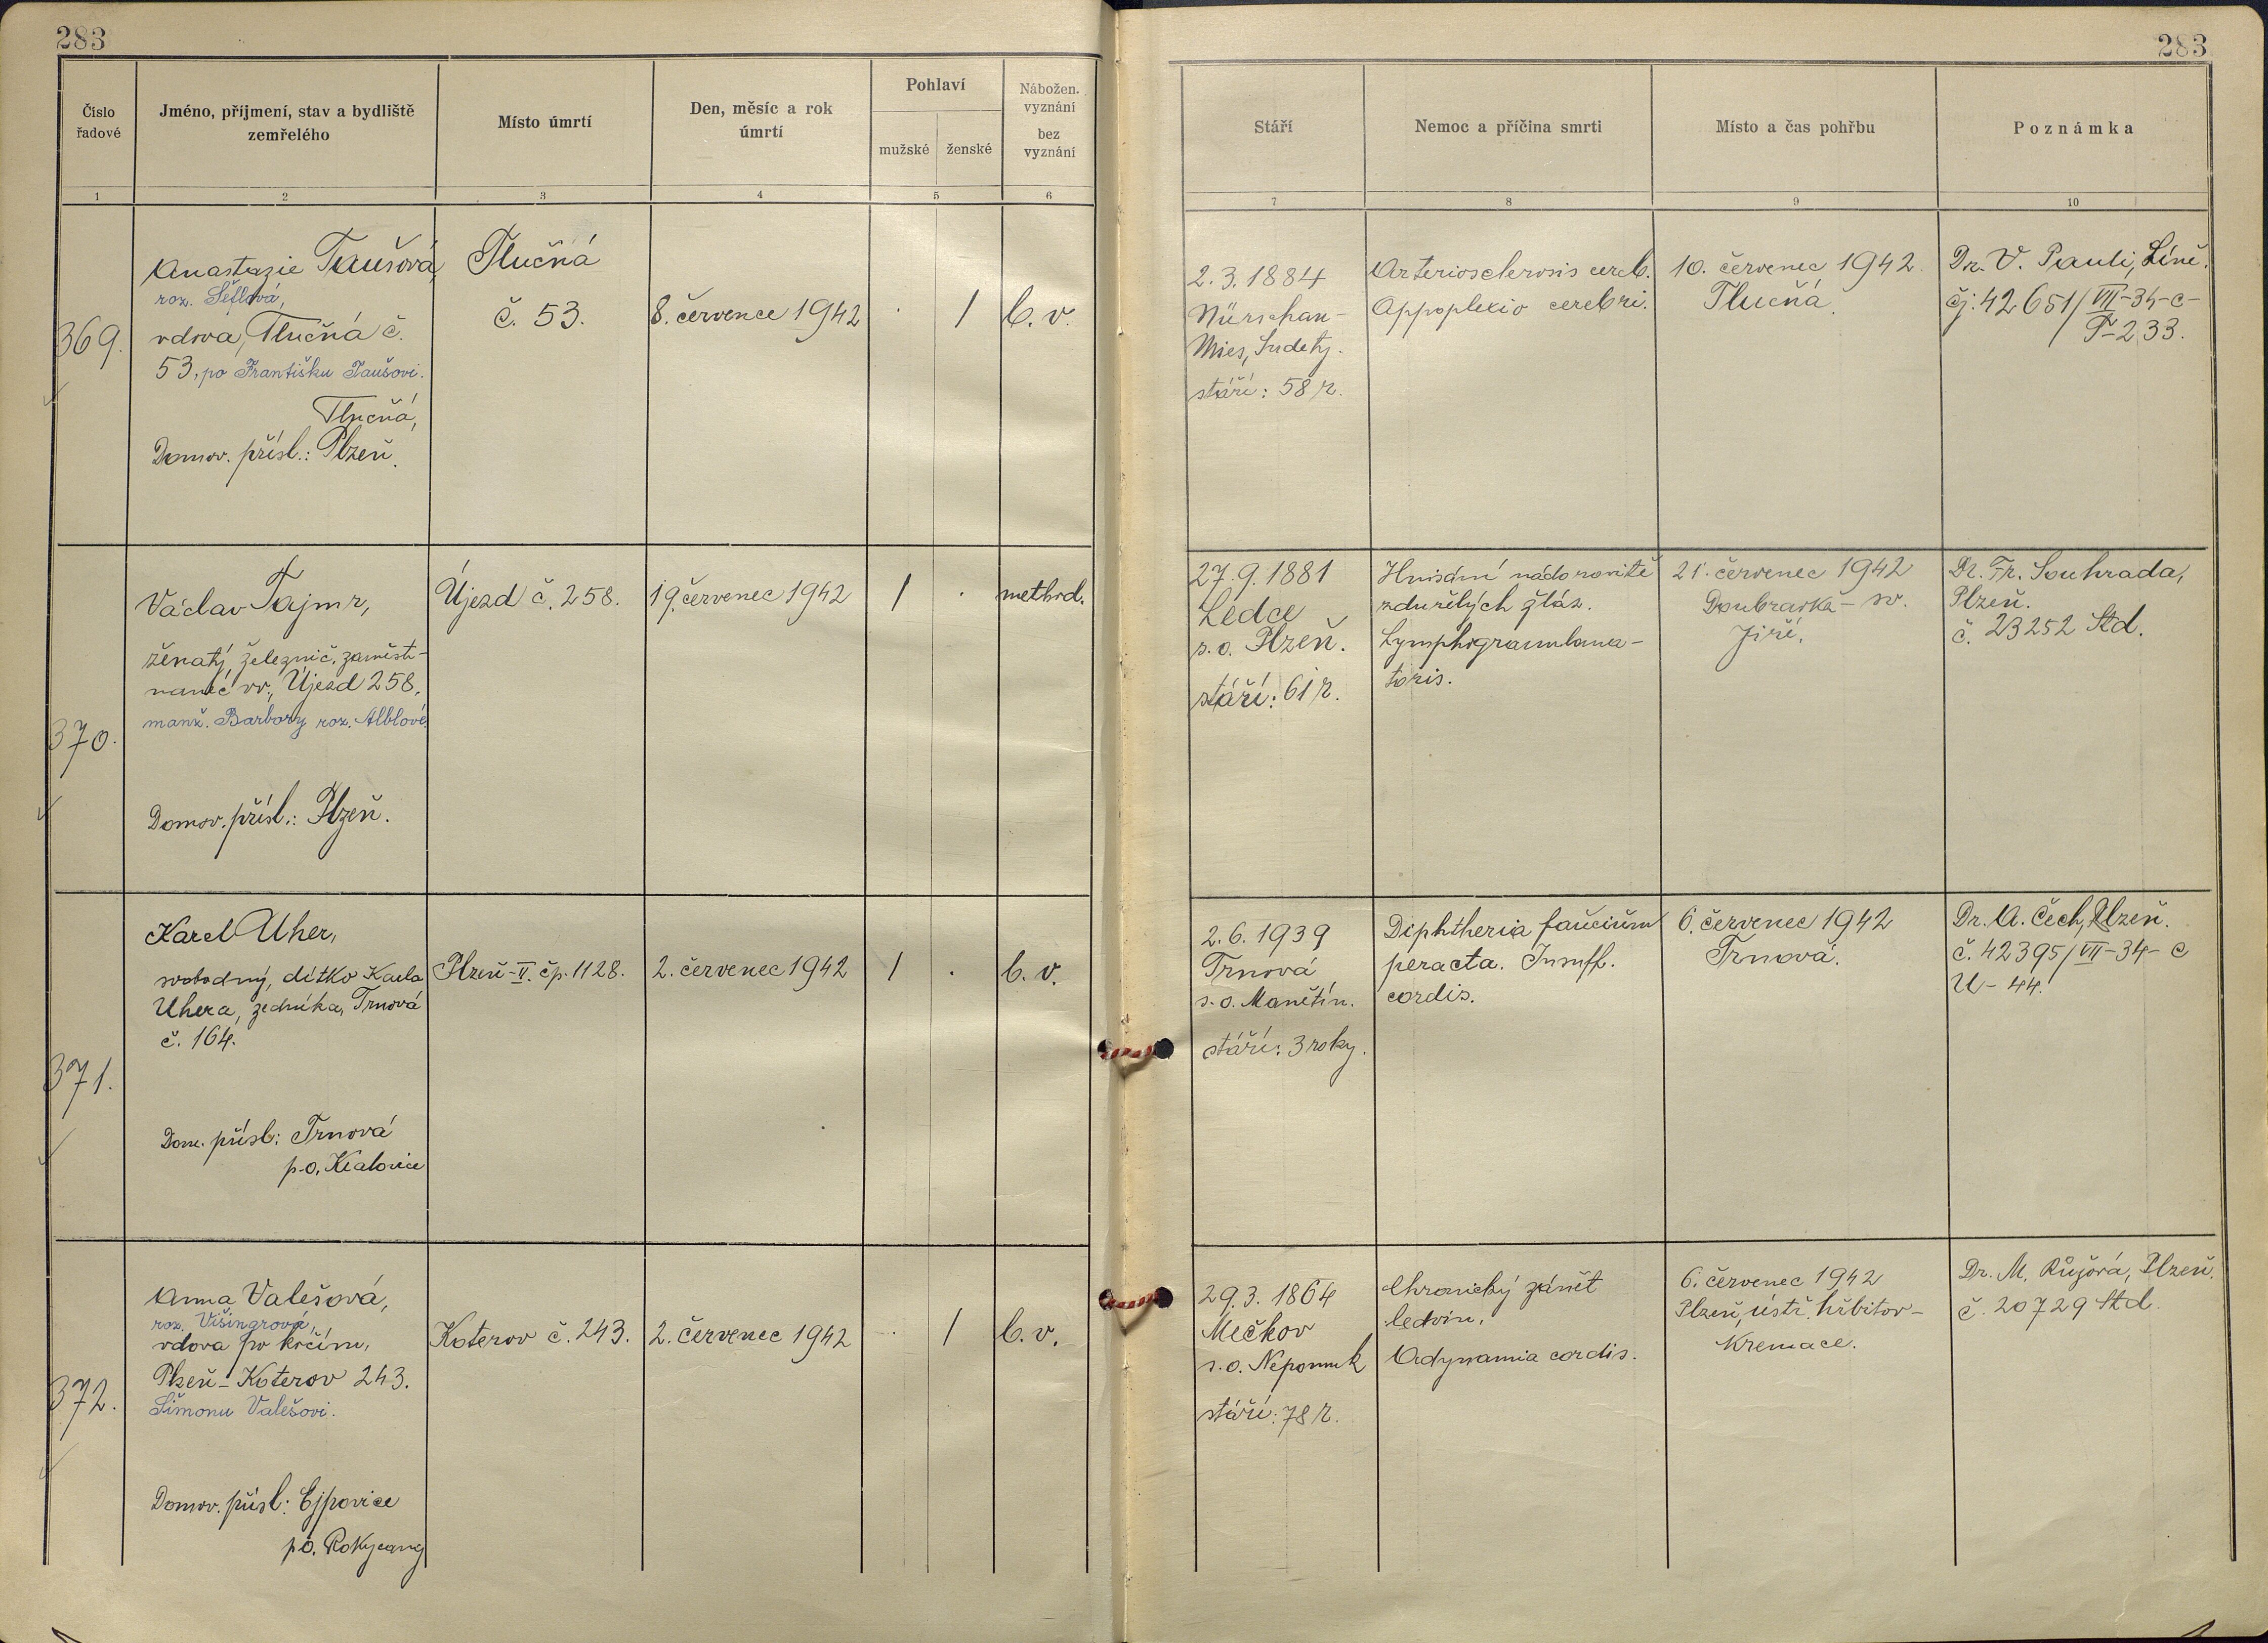 283
283
Číslo řadové
Jméno, příjmení, stav a bydliště zemřelého
Místo úmrtí
Den, měsíc a rok úmrtí
Pohlaví
mužské
ženské
Nábožen. vyznání
bez vyznání
Stáří
Nemoc a příčina smrti
Místo a čas pohřbu
Poznámka
1
2
3
4
5
6
7
8
9
10
369.
Anastazie Taušová,
roz. Šéflová,
vdova, Tlučná č.
53, po Františku Taušovi.
Tlučná,
Domov. přísl.: Plzeň.
Tlučná
č. 53.
8. července 1942
1
b. v.
2.3.1884
Nürschan-
Mies, Sudety.
stáří: 58 r.
Arteriosclerosis cereb.
Appoplexio cerebri.
10. červenec 1942.
Tlučná.
Dr. V. Pauli, Líně.
čj: 42651/VII-34-c-
T-233.
370.
Václav Tajmr,
ženatý, železnič. zaměst-
nanec vv., Újezd 258.
manž. Barbory roz. Alblové
Domov. přísl.: Plzeň.
Újezd č. 258.
19. červenec 1942
1
method.
27.9.1881
Ledce
s.o. Plzeň.
stáří: 61 r.
Hnisání nádorovitě
zduřelých žláz.
Lymphogranuloma-
toris.
21. červenec 1942
Doubravka - sv.
Jiří.
Dr. Fr. Souhrada,
Plzeň.
č. 23252 Std.
371.
Karel Uher,
svobodný, dítko Karla
Uhera, zedníka, Trnová
č. 164.
Dom. přísl: Trnová
p.o. Kralovice
Plzeň-II. čp. 1128.
2. červenec 1942
1
b. v.
2.6.1939
Trnová
s.o. Manětín.
stáří: 3 roky.
Diphtheria faucium
peracta. Insuff.
cordis.
6. červenec 1942
Trnová.
Dr. A. Čech, Plzeň.
č. 42395/VII-34-c
U-44.
372.
Anna Valešová,
roz. Višingrová,
vdova po krčím,
Plzeň-Koterov 243.
Šimonu Valešovi.
Domov. přísl: Ejpovice
p.o. Rokycany
Koterov č. 243.
2. červenec 1942
1
b. v.
29.3.1864
Mečkov
s.o. Nepomuk
stáří: 78 r.
Chronický zánět
ledvin.
Adynamia cordis.
6. červenec 1942
Plzeň, ústř. hřbitov-
Kremace.
Dr. M. Růžová, Plzeň.
č. 20729 Std.